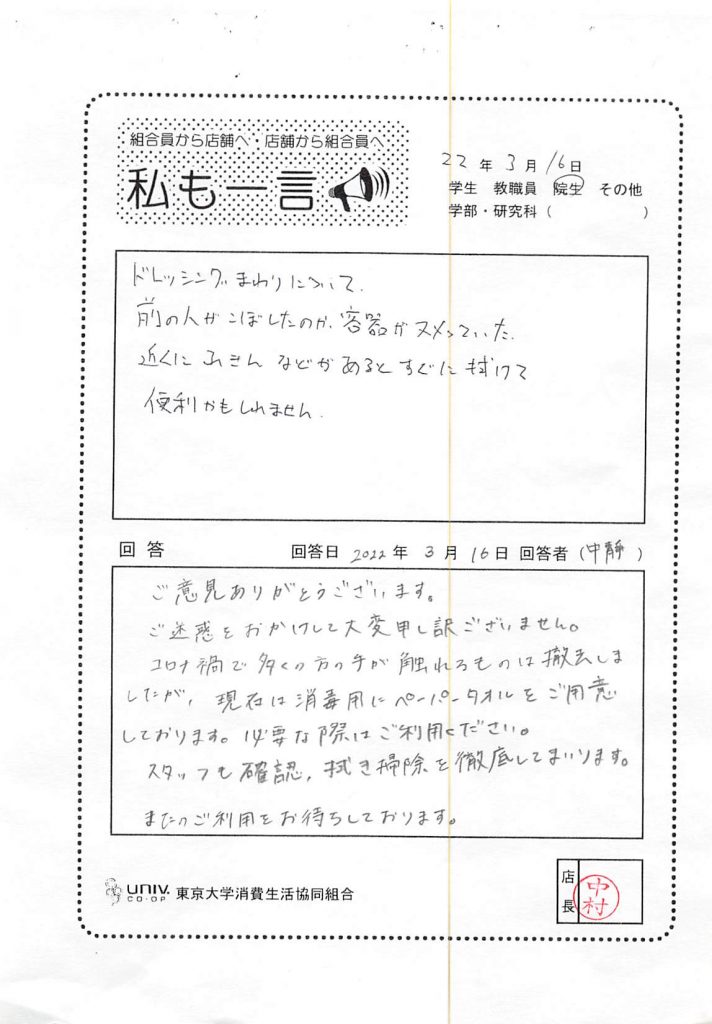 組合員から店舗へ・店舗から組合員へ
私も一言
22年3月16日
学生 教職員 院生 その他
学部・研究科( )
ドレッシングまわりについて.
前の人がこぼしたのか、容器がヌメっていた.
近くにふきんなどがあるとすぐに拭けて
便利かもしれません.
回答 回答日 2022年3月16日 回答者(中静)
ご意見ありがとうございます。
ご迷惑をおかけして大変申し訳ございません。
コロナ禍で多くの方の手が触れるものは撤去しま
したが、現在は消毒用にペーパータオルをご用意
しております。必要な際はご利用ください。
スタッフも確認、拭き掃除を徹底してまいります。
またのご利用をお待ちしております。
UNIV. CO-OP 東京大学消費生活協同組合
店長 中村